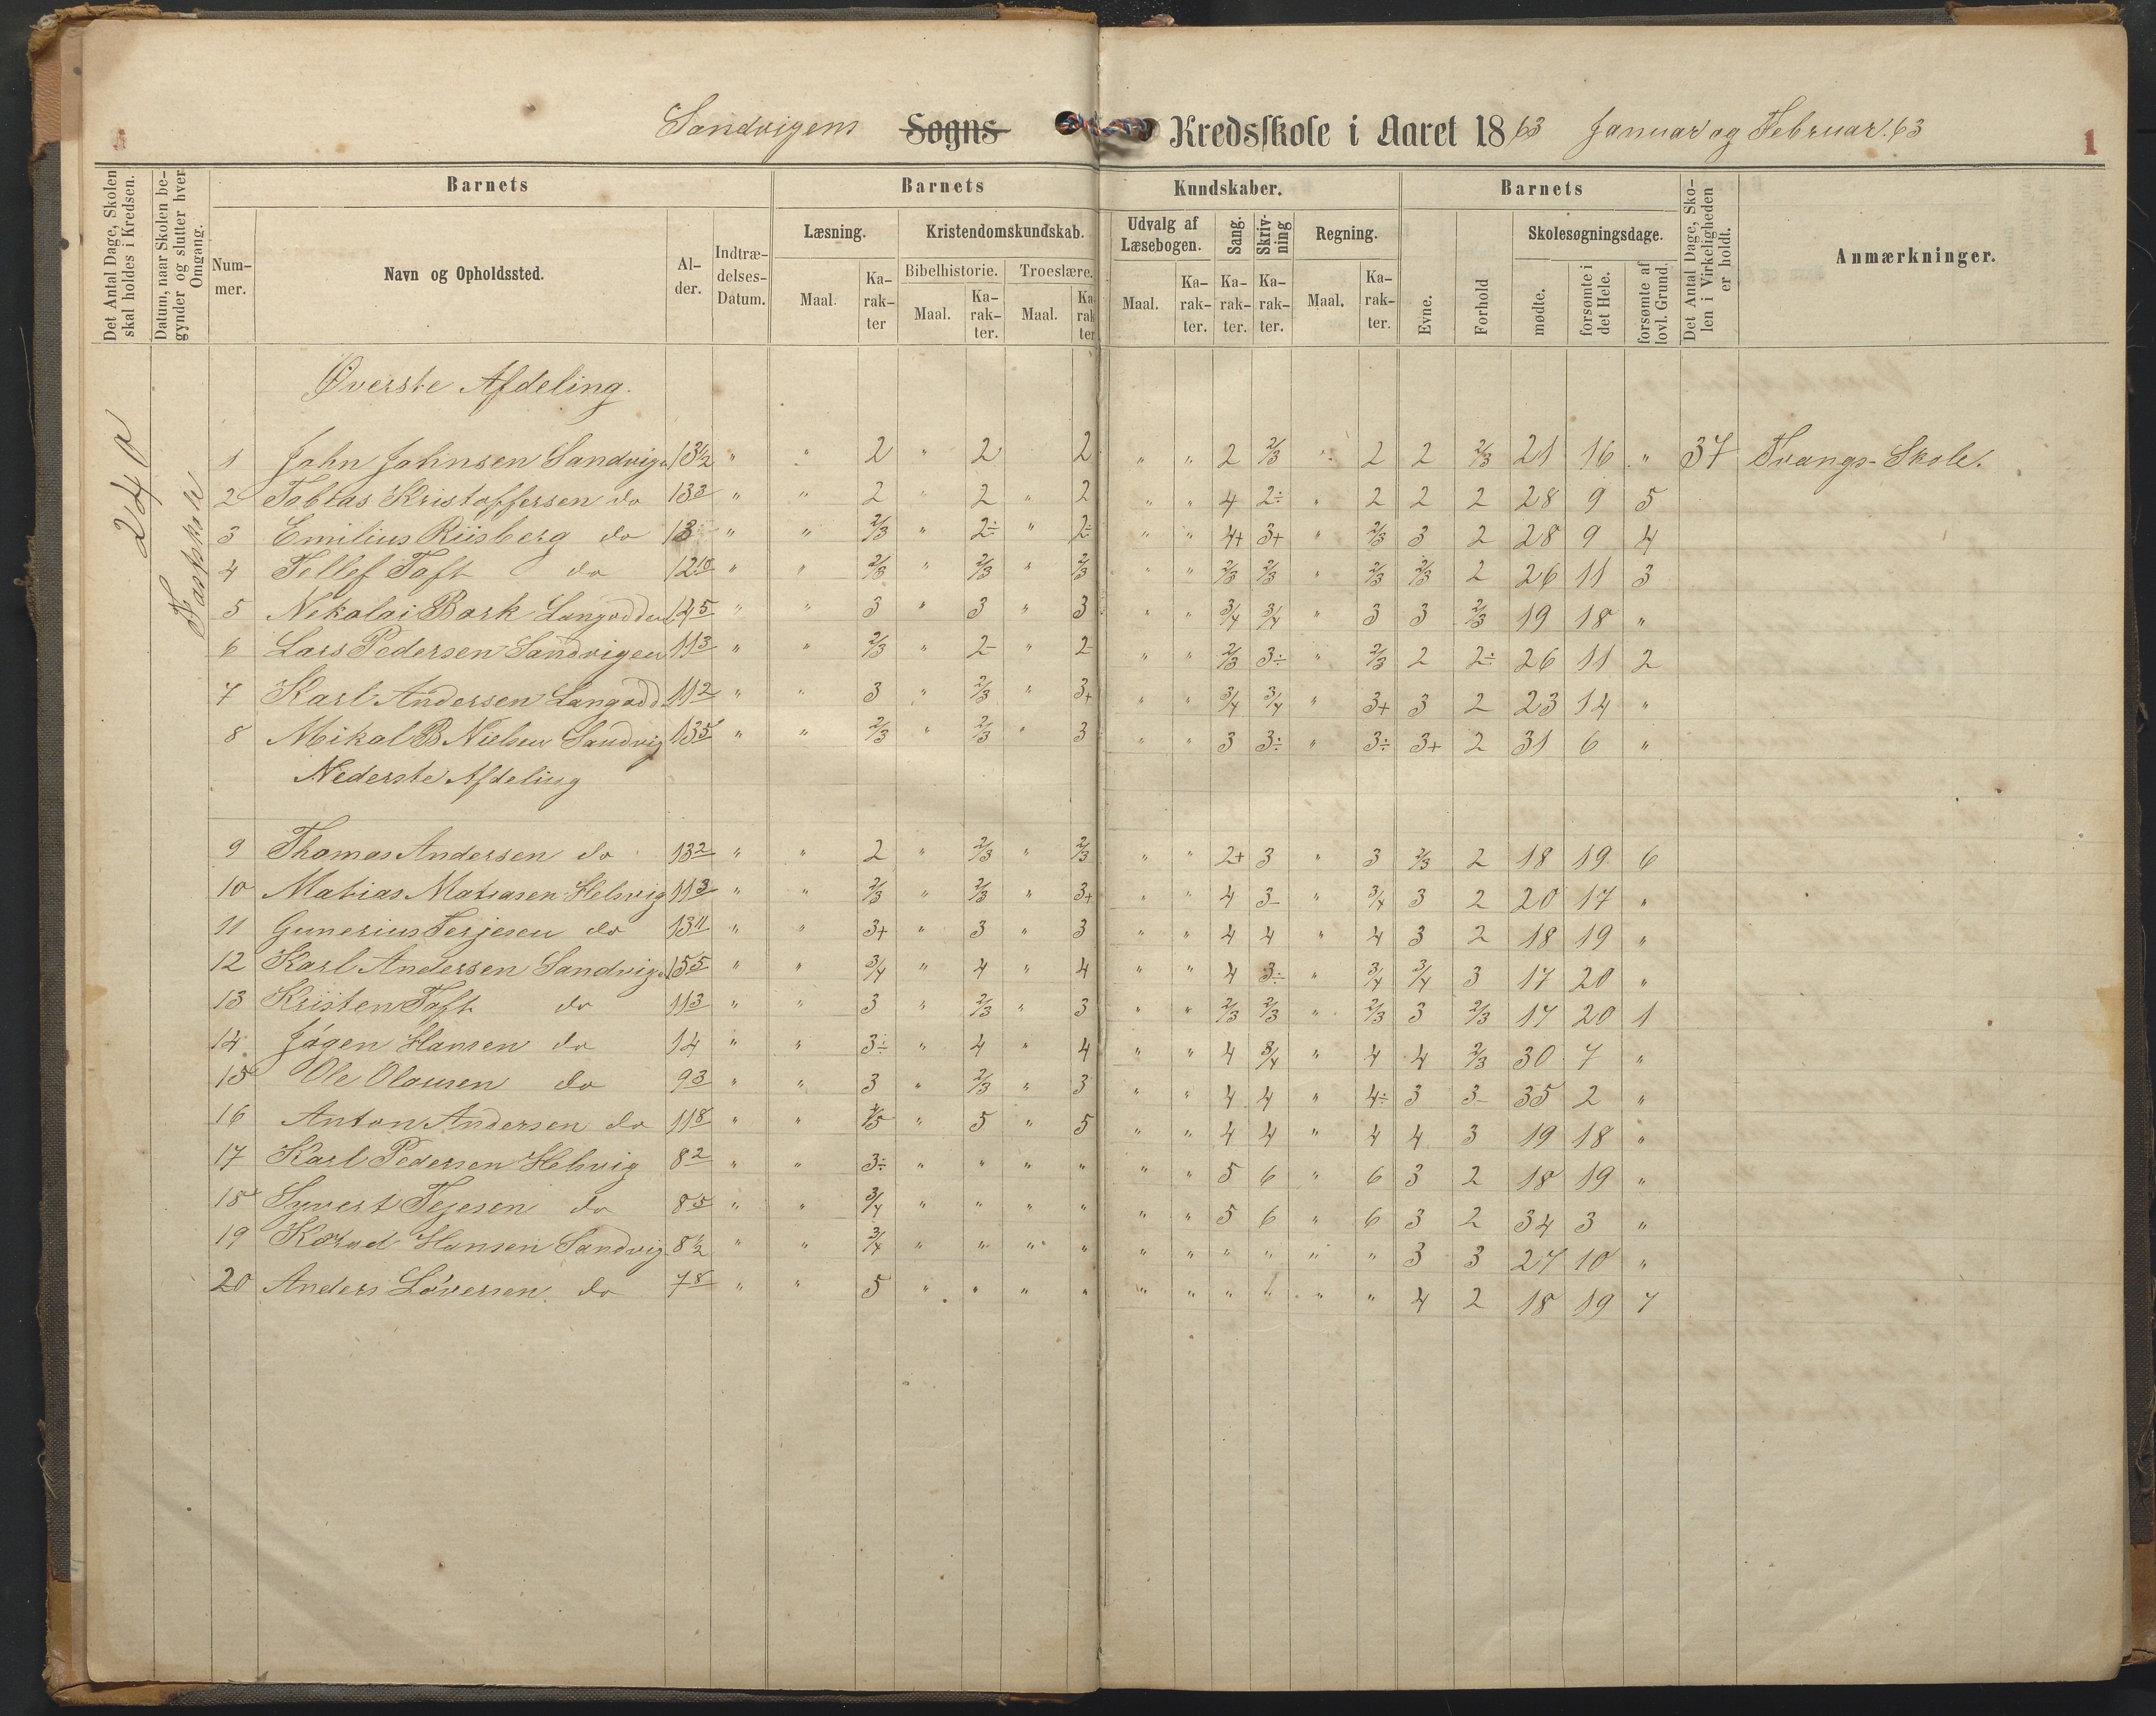 Sandvigens Sogns Kredsskole i Aaret 1863 Januar og Februar 63
1
Det Antal Dage, Skolen skal holdes i Kredsen.
Datum, naar Skolen begynder og slutter hver Omgang.
Barnets
Barnets
Kundskaber.
Barnets
Det Antal Dage, Skolen i Virkeligheden er holdt.
Anmærkninger.
Nummer.
Navn og Opholdssted.
Alder.
Indtrædelses-Datum.
Læsning.
Kristendomskundskab.
Udvalg af Læsebogen.
Sang.
Skrivning
Regning.
Evne.
Forhold
Skolesøgningsdage.
Bibelhistorie.
Troeslære.
Maal.
Karakter
Maal.
Karakter.
Maal.
Karakter
Maal.
Karakter.
Karakter.
Karakter.
Maal.
Karakter.
mødte.
forsømte i det Hele.
forsømte af lovl. Grund.
240
Fastskole
Øverste Afdeling.
1 John Johnsen Sandvig 13 1/2 " " 2 " 2 2 " " 2 2/3 " 2 2 2/3 21 16 " 37 Tvangs-Skole.
2 Tobias Kristoffersen do 13 3 " " 2 " 2 " 2 " " 4 2÷ " 2 2 2 28 9 5
3 Emilius Riisberg do 13 " " 2/3 " 2÷ " 2÷ " " 4+ 3+ " 2/3 3 2 28 9 4
4 Tellef Toft do 12 10 " " 2/3 " 2/3 " 2/3 " " 2/3 2/3 " 2/3 2/3 2 26 11 3
5 Nekolai Bork Langodden 12 5 " " 3 " 3 " 3 " " 3/4 3/4 " 3 3 2/3 19 18 "
6 Lars Pedersen Sandvigen 11 3 " " 2/3 " 2- " 2- " " 2/3 3÷ " 2/3 2 2÷ 26 11 2
7 Karl Andersen Langodd 11 2 " " 3 " 2/3 " 3+ " " 3/4 3/4 " 3+ 3 2 23 14 "
8 Mikal B Nielsen Sandvig 13 5 " " 2/3 " 2/3 " 3 " " 3 3÷ " 3÷ 3+ 2 31 6 "
Nederste Afdeling
9 Thomas Andersen do 13 2 " " 2 " 2/3 " 2/3 " " 2+ 3 " 3 2/3 2 18 19 6
10 Matias Matiasen Helsvig 11 3 " " 2/3 " 2/3 " 3+ " " 4 3- " 3/4 3 2 20 17 "
11 Gunerius Terjesen do 13 11 " " 3+ " 3 " 3 " " 4 4 " 4 3 2 18 19 "
12 Karl Andersen Sandvig 15 5 " " 3/4 " 4 " 4 " " 4 3÷ " 3/4 3/4 3 17 20 "
13 Kristen Toft do 11 3 " " 3 " 2/3 " 3 " " 2/3 2/3 " 2/3 3 2/3 17 20 1
14 Jøgen Hansen do 14 " " 3÷ " 4 " 4 " " 4 3/4 " 4 4 2/3 30 7 "
15 Ole Olausen do 9 3 " " 3 " 2/3 " 3 " " 4 4 " 4÷ 3 3- 35 2 "
16 Anton Andersen do 11 8 " " 4/5 " 5 " 5 " " 4 4 " 4 4 3 19 18 "
17 Karl Pedersen Helsvig 8 2 " " 3÷ " " " " " " 5 6 " 6 3 2 18 19 "
18 Syvert Tejesen do 8 5 " " 3/4 " " " " " " 5 6 " 6 3 2 34 3 "
19 Hansen Sandvig 8 1/2 " " 3/4 " " " " " " " " " " 3 3 27 10 "
20 Anders Løversen do 7 8 " " 5 " " " " " " " " " " 4 2 18 19 7